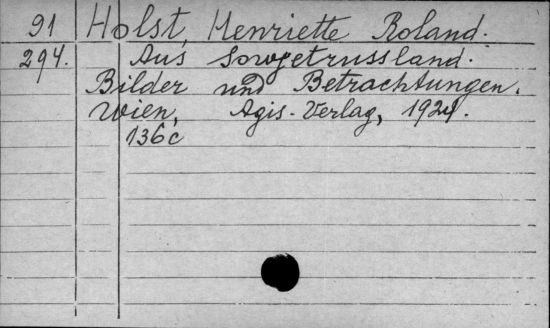 91 Holst, Henriette Roland.
294. Aus Sowjetrussland.
Bilder und Betrachtungen.
Wien, Agis-Verlag, 1924.
136c